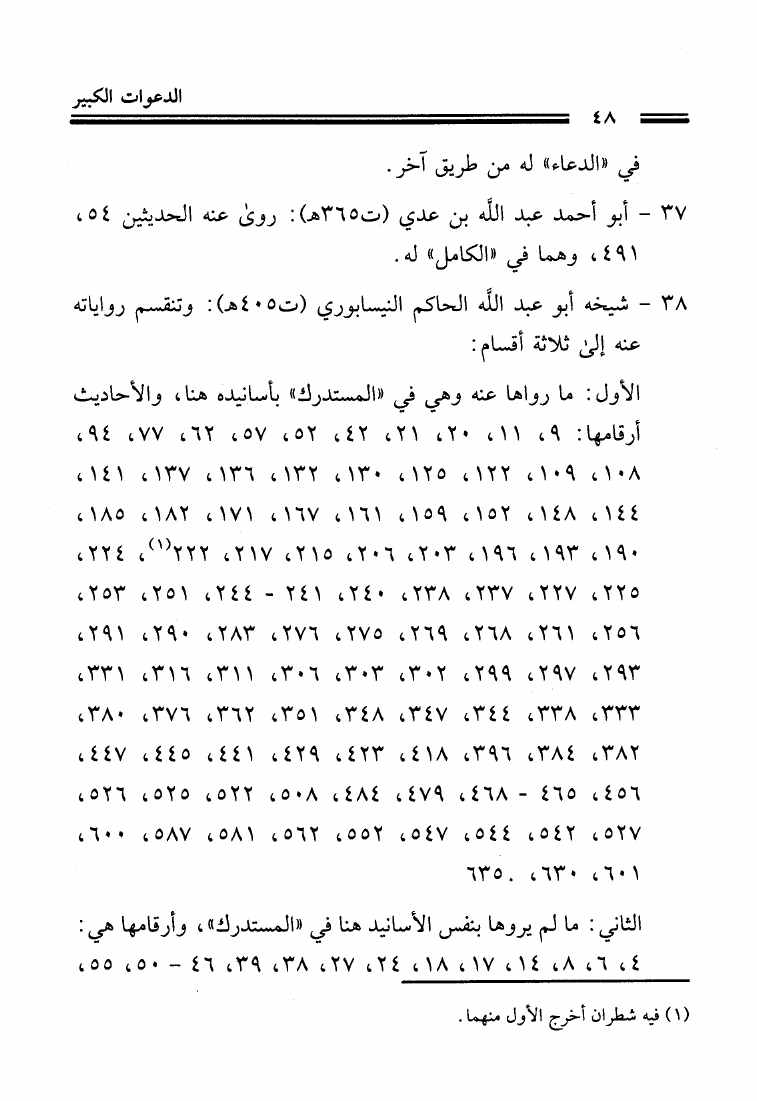 الدعوات الكبير
٤٨
في «الدعاء» له من طريق آخر.
٣٧ - أبو أحمد عبد اللَّه بن عدي (ت٣٦٥هـ): روىٰ عنه الحديثين ٥٤،
٤٩١، وهما في «الكامل» له.
٣٨ - شيخه أبو عبد اللَّه الحاكم النيسابوري (ت٤٠٥هـ): وتنقسم رواياته
عنه إلىٰ ثلاثة أقسام:
الأول: ما رواها عنه وهي في «المستدرك» بأسانيده هنا، والأحاديث
أرقامها: ٩، ١١، ٢٠، ٢١، ٤٢، ٥٢، ٥٧، ٦٢، ٧٧، ٩٤،
١٠٨، ١٠٩، ١٢٢، ١٢٥، ١٣٠، ١٣٢، ١٣٦، ١٣٧، ١٤١،
١٤٤، ١٤٨، ١٥٢، ١٥٩، ١٦١، ١٦٧، ١٧١، ١٨٢، ١٨٥،
١٩٠، ١٩٣، ١٩٦، ٢٠٣، ٢٠٦، ٢١٥، ٢١٧، ٢٢٢(١)، ٢٢٤،
٢٢٥، ٢٢٧، ٢٣٧، ٢٣٨، ٢٤٠، ٢٤١ - ٢٤٤، ٢٥١، ٢٥٣،
٢٥٦، ٢٦١، ٢٦٨، ٢٦٩، ٢٧٥، ٢٧٦، ٢٨٣، ٢٩٠، ٢٩١،
٢٩٣، ٢٩٧، ٢٩٩، ٣٠٢، ٣٠٣، ٣٠٦، ٣١١، ٣١٦، ٣٣١،
٣٣٣، ٣٣٨، ٣٤٤، ٣٤٧، ٣٤٨، ٣٥١، ٣٦٢، ٣٧٦، ٣٨٠،
٣٨٢، ٣٨٤، ٣٩٦، ٤١٨، ٤٢٣، ٤٢٩، ٤٤١، ٤٤٥، ٤٤٧،
٤٥٦، ٤٦٥ - ٤٦٨، ٤٧٩، ٤٨٤، ٥٠٨، ٥٢٢، ٥٢٥، ٥٢٦،
٥٢٧، ٥٤٢، ٥٤٤، ٥٤٧، ٥٥٢، ٥٦٢، ٥٨١، ٥٨٧، ٦٠٠،
٦٠١، ٦٣٠، .٦٣٥
الثاني: ما لم يروها بنفس الأسانيد هنا في «المستدرك»، وأرقامها هي:
٤، ٦، ٨، ١٤، ١٧، ١٨، ٢٤، ٢٧، ٣٨، ٣٩، ٤٦ - ٥٠، ٥٥،
(١) فيه شطران أخرج الأول منهما.